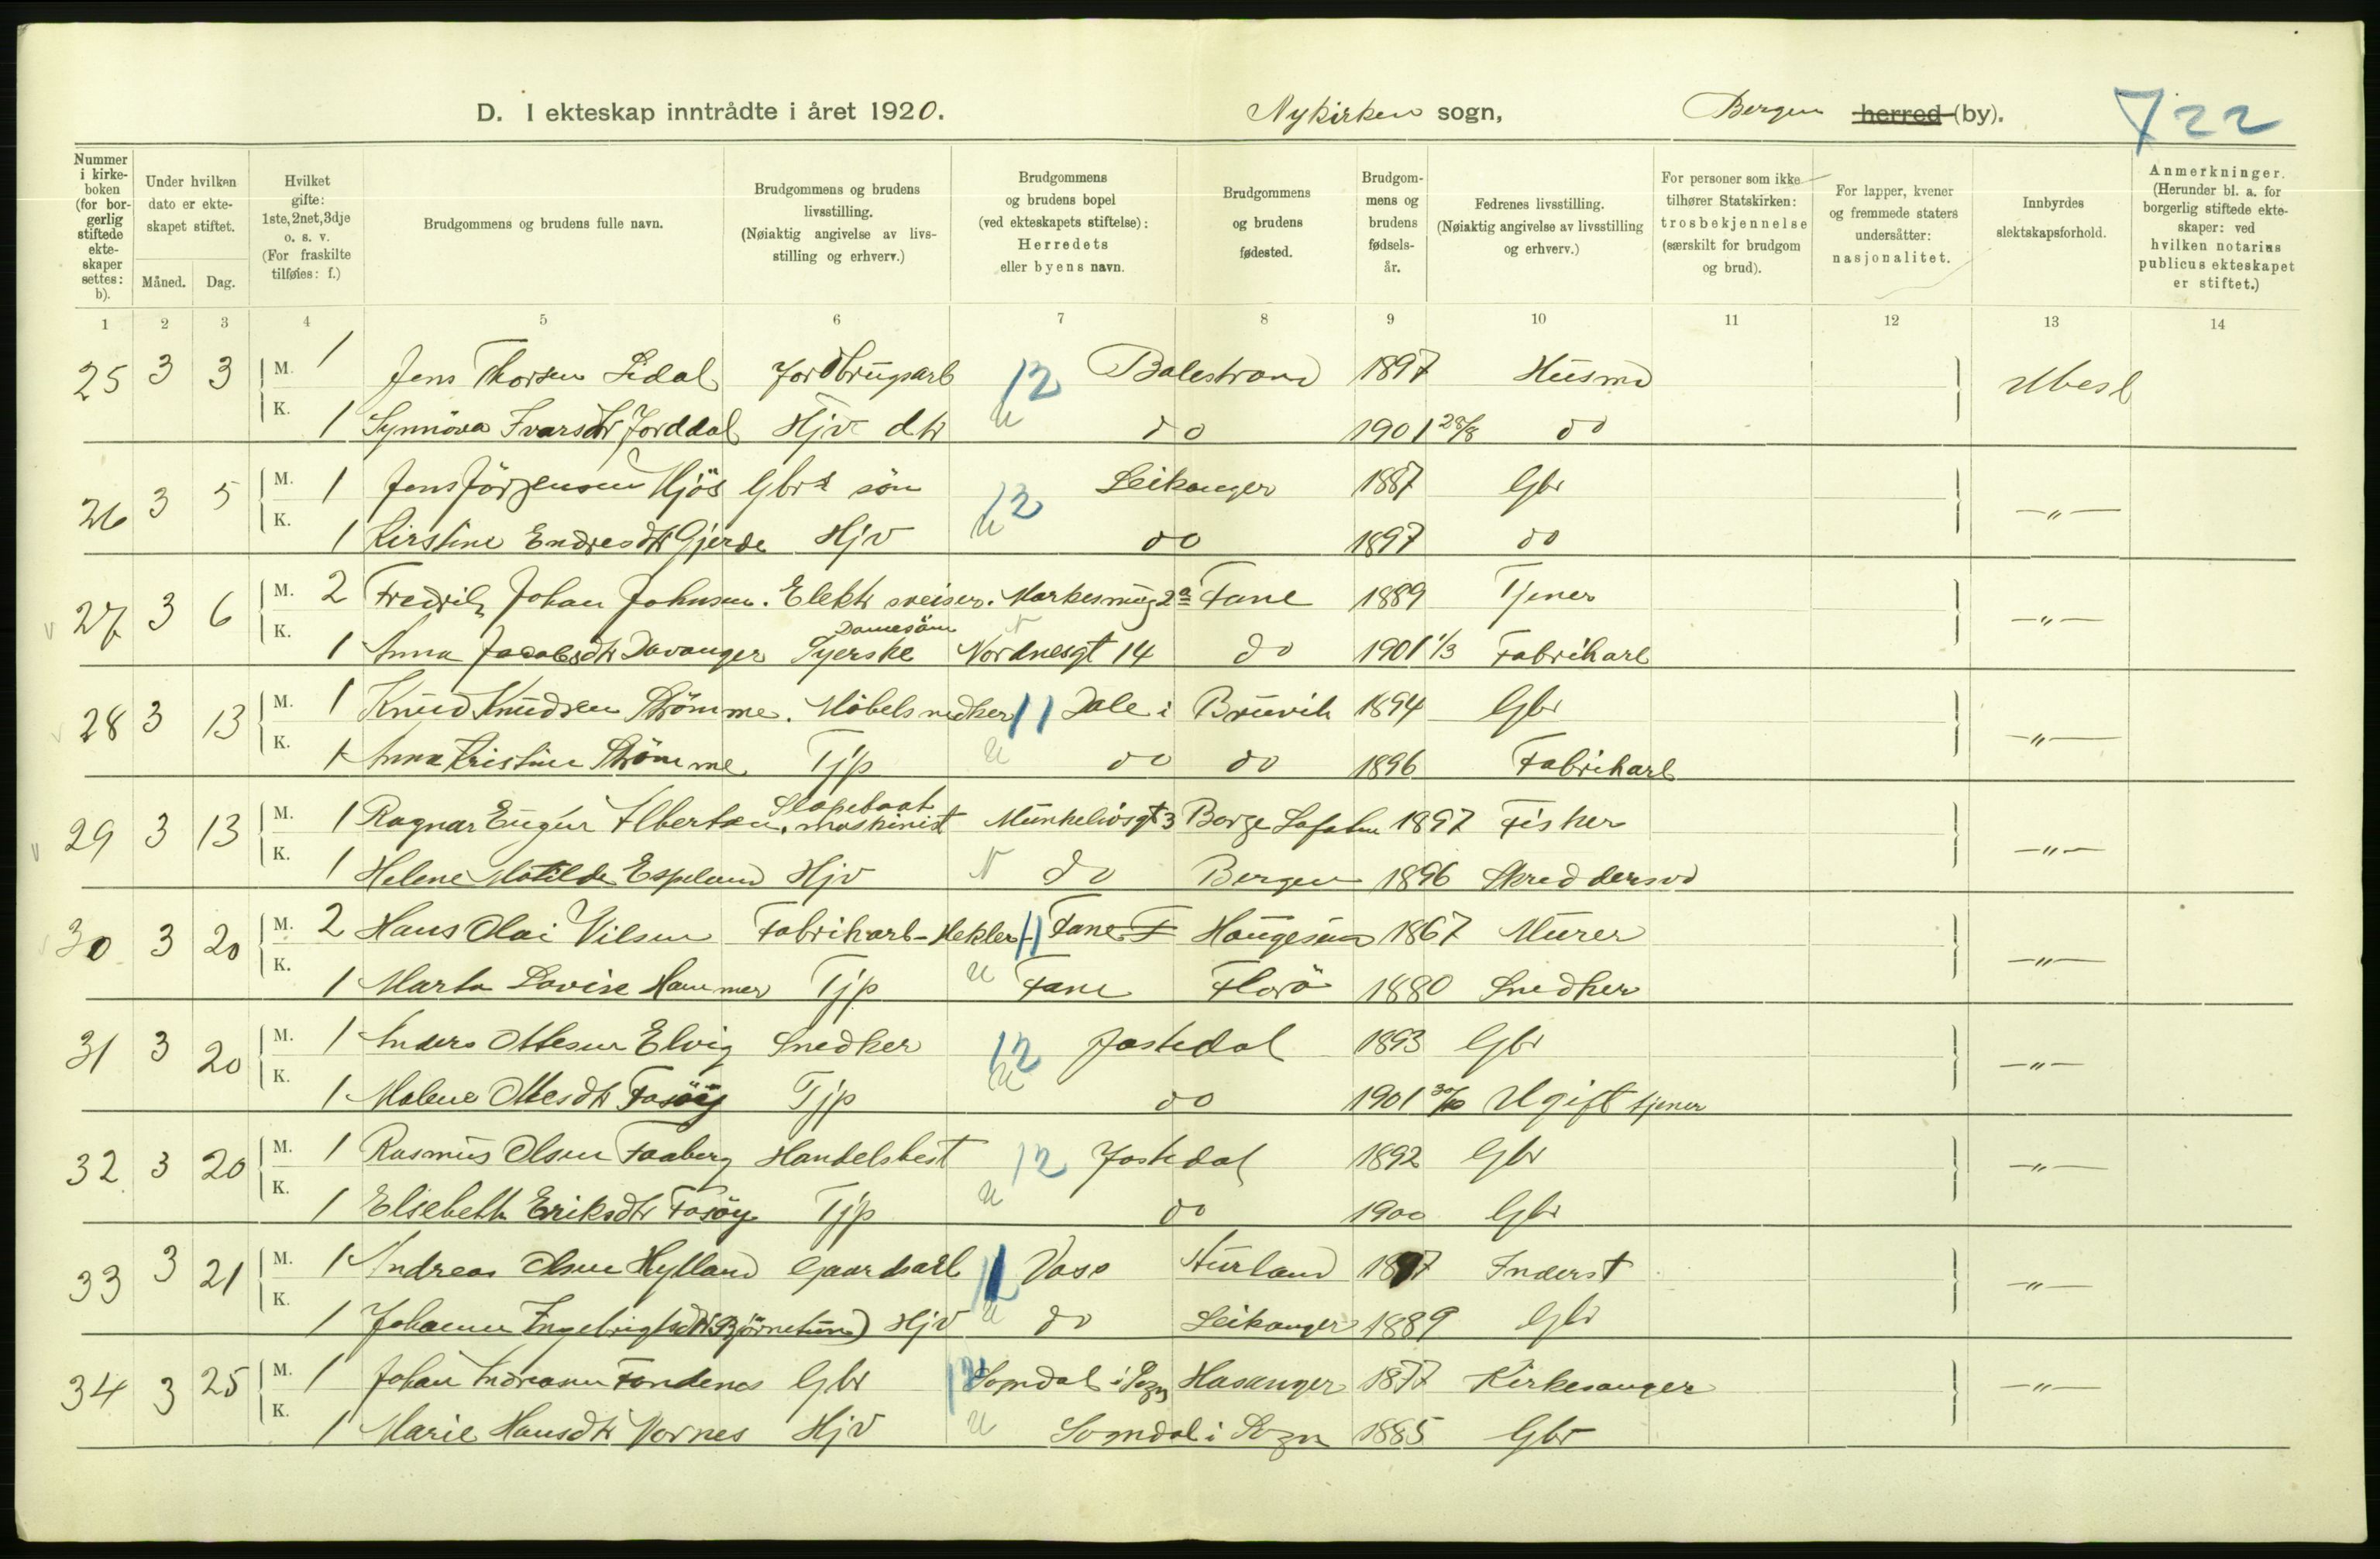 D. I ekteskap inntrådte i året 1920. Nykirken sogn, Bergen herred (by). 722
Nummer i kirkeboken (for borgerlig stiftede ekteskaper settes: b). Under hvilken dato er ekteskapet stiftet. Måned. Dag. Hvilket gifte: 1ste, 2net, 3dje o. s. v. (For fraskilte tilføies: f.) Brudgommens og brudens fulle navn. Brudgommens og brudens livsstilling. (Nøiaktig angivelse av livsstilling og erhverv.) Brudgommens og brudens bopel (ved ekteskapets stiftelse): Herredets eller byens navn. Brudgommens og brudens fødested. Brudgommens og brudens fødselsår. Fedrenes livsstilling. (Nøiaktig angivelse av livsstilling og erhverv.) For personer som ikke tilhører Statskirken: trosbekjennelse (særskilt for brudgom og brud). For lapper, kvener og fremmede staters undersåtter: nasjonalitet. Innbyrdes slektskapsforhold. Anmerkninger. (Herunder bl. a. for borgerlig stiftede ekteskaper: ved hvilken notarius publicus ekteskapet er stiftet.)
1 2 3 4 5 6 7 8 9 10 11 12 13 14
25 3 3 M. 1 Jens Thorsen Lidal Jordbrugsarb 12 Balestrand 1897 Husmd Ubesl
K. 1 Synnöva Ivarsdtr Jorddal Hjv dtr u do 1901 28/8 do
26 3 5 M. 1 Jens Jörgensen Njös Gbrs sön 12 Leikanger 1887 Gbr —"—
K. 1 Kirstine Endresdtr Gjerde Hjv u do 1897 do
27 3 6 M. 2 Fredrik Johan Johnsen. Elektr sveiser. Markesmug 2a Fane 1889 Tjener —"—
K. 1 Anna Jacobsdtr Davanger Damesöm Syerske Nordnesgt 14 do 1901 1/3 Fabrikarb
28 3 13 M. 1 Knud Knudsen Strömme. Möbelsnedker 11 Dale i Bruvik 1894 Gbr —"—
K. 1 Anna Kristine Strömme Tjp u do do 1896 Fabrikarb
29 3 13 M. 1 Ragnar Eugen Albertsen. Slæpebaat maskinist Munkelivsgt 3 Borge Lofoten 1897 Fisker —"—
K. 1 Helene Matilde Espeland Hjv do Bergen 1896 Skreddersvd
30 3 20 M. 2 Hans Olai Nilsen Fabrikarb-Hekler- 11 Fane F Haugesund 1867 Murer —"—
K. 1 Marta Lovise Hammer Tjp u Fane Florö 1880 Snedker
31 3 20 M. 1 Anders Ottesen Elvig Snedker 12 Jostedal 1893 Gbr —"—
K. 1 Malene Ottesdtr Fasöy Tjp u do 1901 30/10 Ugift tjener
32 3 20 M. 1 Rasmus Olsen Faaberg Handelsbest 12 Jostedal 1892 Gbr —"—
K. 1 Elisebeth Eriksdtr Fasöy Tjp u do 1900 Gbr
33 3 21 M. 1 Andreas Olsen Hylland Gaardsarb Voss Aurland 1897 Inderst —"—
K. 1 Johanne Ingebrigtsdtr Björnetun Hjv u do Leikanger 1889 Gbr
34 3 25 M. 1 Johan Andreasen Fondenes Gbr 12 Sogndal i Sogn Hasanger 1877 Kirkesanger —"—
K. 1 Marie Hansdtr Vornes Hjv u Sogndal i Sogn 1885 Gbr